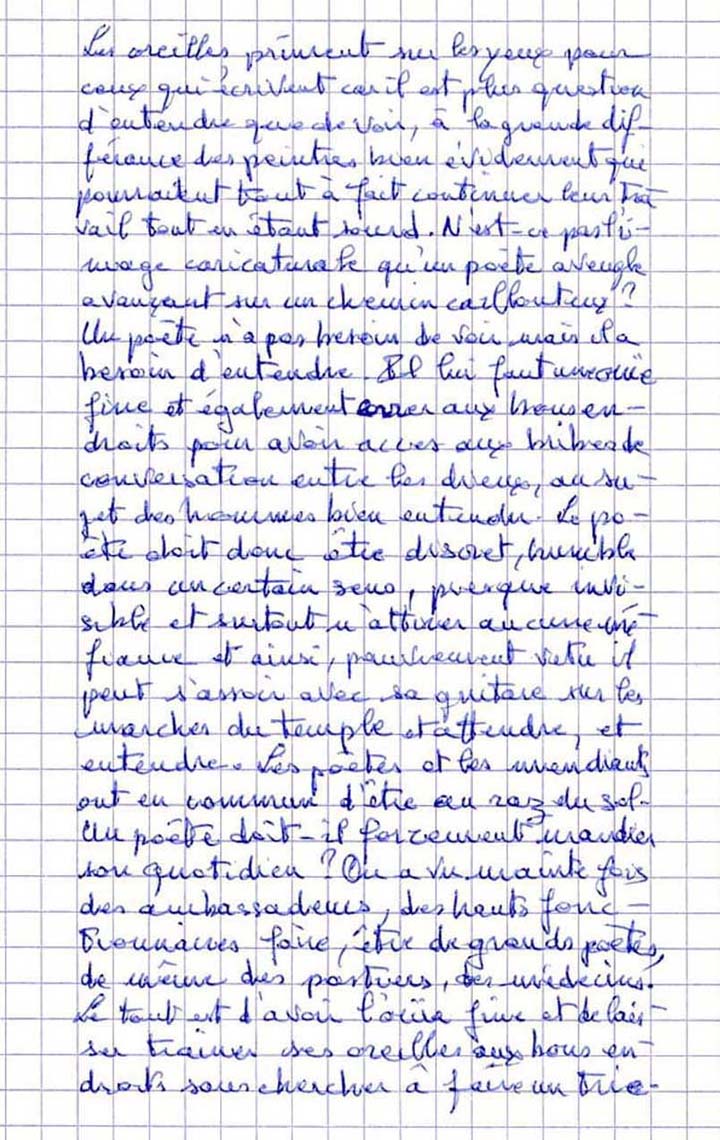 Les oreilles priment sur les yeux pour
ceux qui écrivent car il est plus question
d'entendre que de voir, à la grande dif-
férence des peintres bien évidemment qui
pourraient tout à fait continuer leur tra
vail tout en étant sourd. N'est-ce pas l'i-
mage caricaturale qu'un poète aveugle
avançant sur un chemin caillouteux ?
Un poète n'a pas besoin de voir mais il a
besoin d'entendre. Il lui faut une ouïe
fine et également errer aux bons en-
droits pour avoir acces aux bribes de
conversation entre les dieux, au su-
jet des hommes bien entendu. Le po-
ète doit donc être discret, humble
dans un certain sens, presque invi-
sible et surtout n'attirer aucune mé-
fiance et ainsi, pauvrement vêtu il
peut s'assoir avec sa guitare sur les
marches du temple et attendre, et
entendre. Les poètes et les mendiants
ont en commun d'être au raz du sol.
Un poète doit-il forcement mandier
son quotidien ? On a vu mainte fois
des ambassadeurs, des hauts fonc-
tionnaires faire, être de grands poètes,
de même des postiers, des médecins.
Le tout est d'avoir l'ouïe fine et de lais-
ser trainer ses oreilles aux bons en-
droits sans chercher à faire un trie-